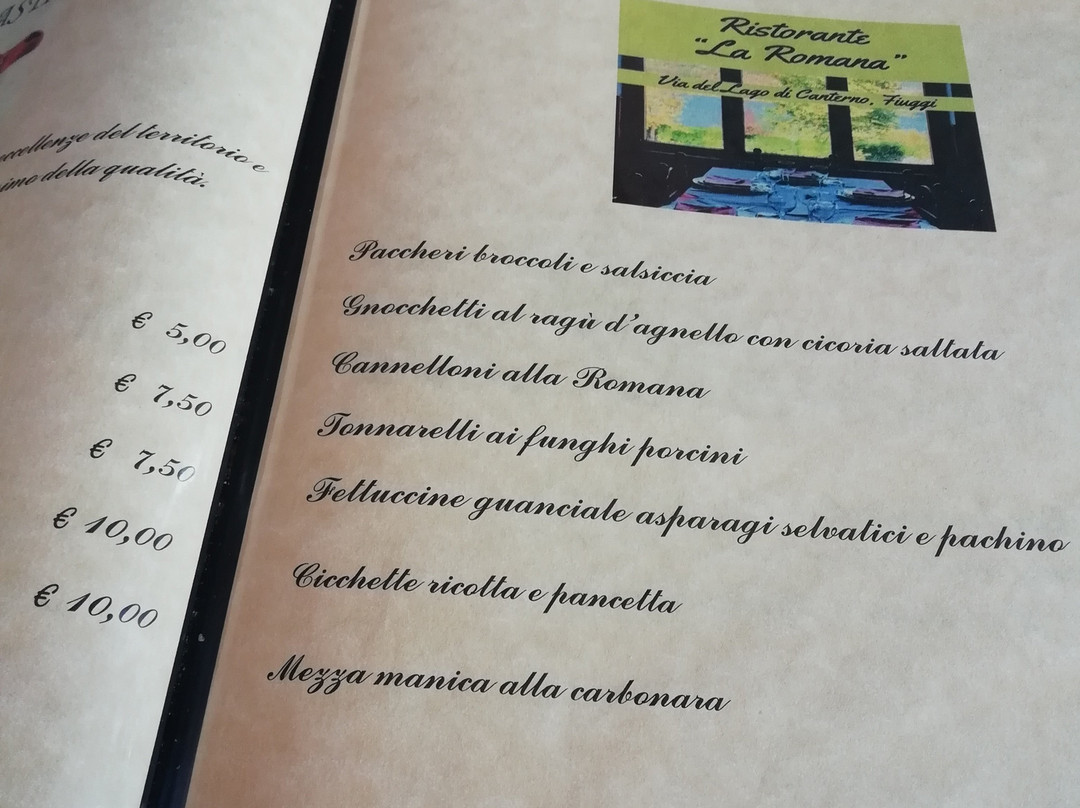 eccellenze del territorio e
della qualità.
€ 5,00
€ 7,50
€ 7,50
€ 10,00
€ 10,00
Ristorante
“La Romana”
Via del Lago di Canterno, Fiuggi
Paccheri broccoli e salsiccia
Gnocchetti al ragù d’agnello con cicoria saltata
Cannelloni alla Romana
Tonnarelli ai funghi porcini
Fettuccine guanciale asparagi selvatici e pachino
Cicchette ricotta e pancetta
Mezza manica alla carbonara